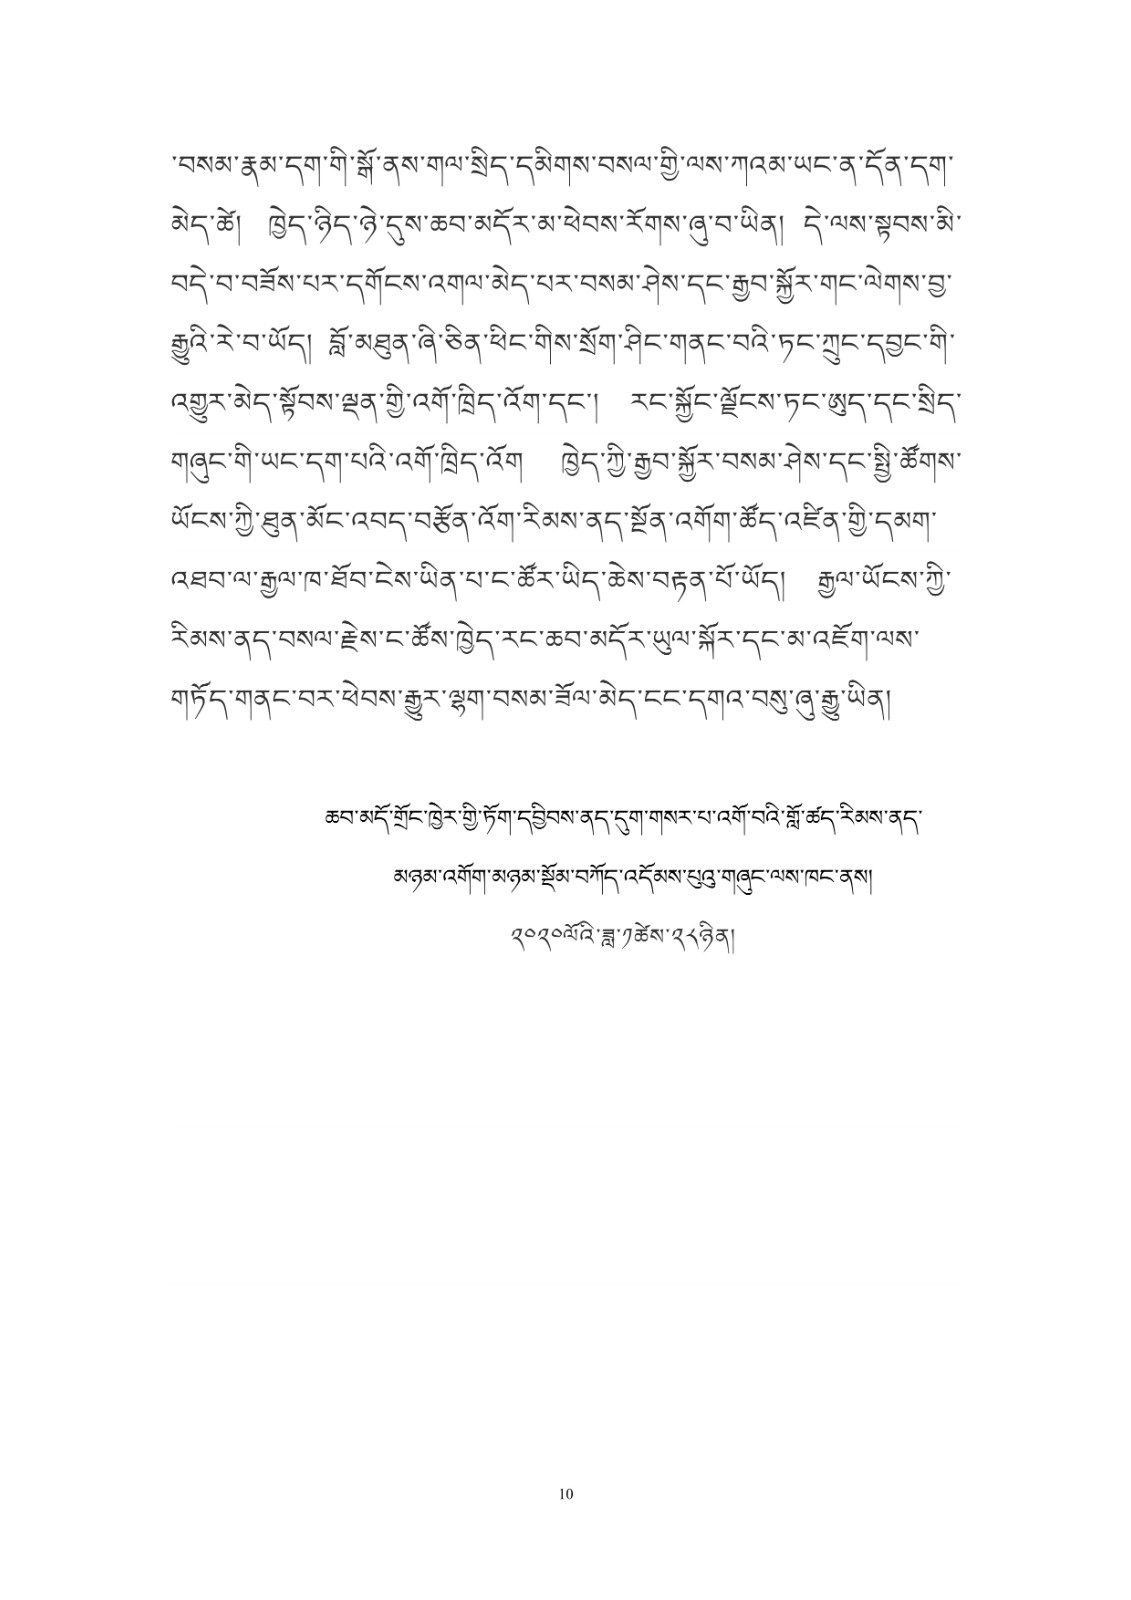 ་བསམ་རྣམ་དག་གི་སྒོ་ནས་གལ་སྲིད་དམིགས་བསལ་གྱི་ལས་ཀའམ་ཡང་ན་དོན་དག་
མེད་ཚེ། ཁྱེད་ཉིད་ཉེ་དུས་ཆབ་མདོར་མ་ཕེབས་རོགས་ཞུ་བ་ཡིན། དེ་ལས་སྟབས་མི་
བདེ་བ་བཟོས་པར་དགོངས་འགལ་མེད་པར་བསམ་ཤེས་དང་རྒྱབ་སྐྱོར་གང་ལེགས་བྱ་
རྒྱུའི་རེ་བ་ཡོད། བློ་མཐུན་ཞི་ཅིན་ཕིང་གིས་སྲོག་ཤིང་གནང་བའི་ཏང་ཀྲུང་དབྱང་གི་
འགྱུར་མེད་སྟོབས་ལྡན་གྱི་འགོ་ཁྲིད་འོག་དང་། རང་སྐྱོང་ལྗོངས་ཏང་ཨུད་དང་སྲིད་
གཞུང་གི་ཡང་དག་པའི་འགོ་ཁྲིད་འོག ཁྱེད་ཀྱི་རྒྱབ་སྐྱོར་བསམ་ཤེས་དང་སྤྱི་ཚོགས་
ཡོངས་ཀྱི་ཐུན་མོང་འབད་བརྩོན་འོག་རིམས་ནད་སྔོན་འགོག་ཚོད་འཛིན་གྱི་དམག་
འཐབ་ལ་རྒྱལ་ཁ་ཐོབ་ངེས་ཡིན་པ་ང་ཚོར་ཡིད་ཆེས་བརྟན་པོ་ཡོད། རྒྱལ་ཡོངས་ཀྱི་
རིམས་ནད་བསལ་རྗེས་ང་ཚོས་ཁྱེད་རང་ཆབ་མདོར་ཡུལ་སྐོར་དང་མ་འཇོག་ལས་
གཏོད་གནང་བར་ཕེབས་རྒྱུར་ལྷག་བསམ་ཟོལ་མེད་ངང་དགའ་བསུ་ཞུ་རྒྱུ་ཡིན།
ཆབ་མདོ་གྲོང་ཁྱེར་གྱི་ཏོག་དབྱིབས་ནད་དུག་གསར་པ་འགོ་བའི་གློ་ཚད་རིམས་ནད་
མཉམ་འགོག་མཉམ་སྡོམ་བཀོད་འདོམས་པུའུ་གཞུང་ལས་ཁང་ནས།
༢༠༢༠ལོའི་ཟླ་༡ཚེས་༢༨ཉིན།
10